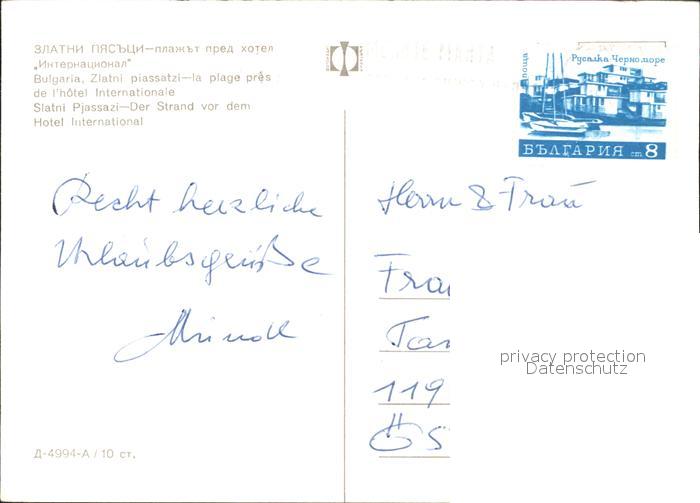 ЗЛАТНИ ПЯСЪЦИ—плажът пред хотел
„Интернационал"
Bulgaria, Zlatni piassatzi—la plage près
de l'hôtel Internationale
Slatni Pjassazi—Der Strand vor dem
Hotel International
поща
Русалка Черноморе
БЪЛГАРИЯ ст 8
Recht herzliche
Urlaubsgrüße
Herrn & Frau
Fra
privacy protection
Datenschutz
119
ÖS
Д-4994-А / 10 ст.